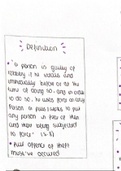 Definition
• "a person is guilty of
robbery if he steals and
immediately before or at the
time of doing so, and in order
to do so, he uses force on any
person or puts or seeks to put
any person in fear of then
and there being subjected
to force" (s.8)
• full offence of theft
must've occurred